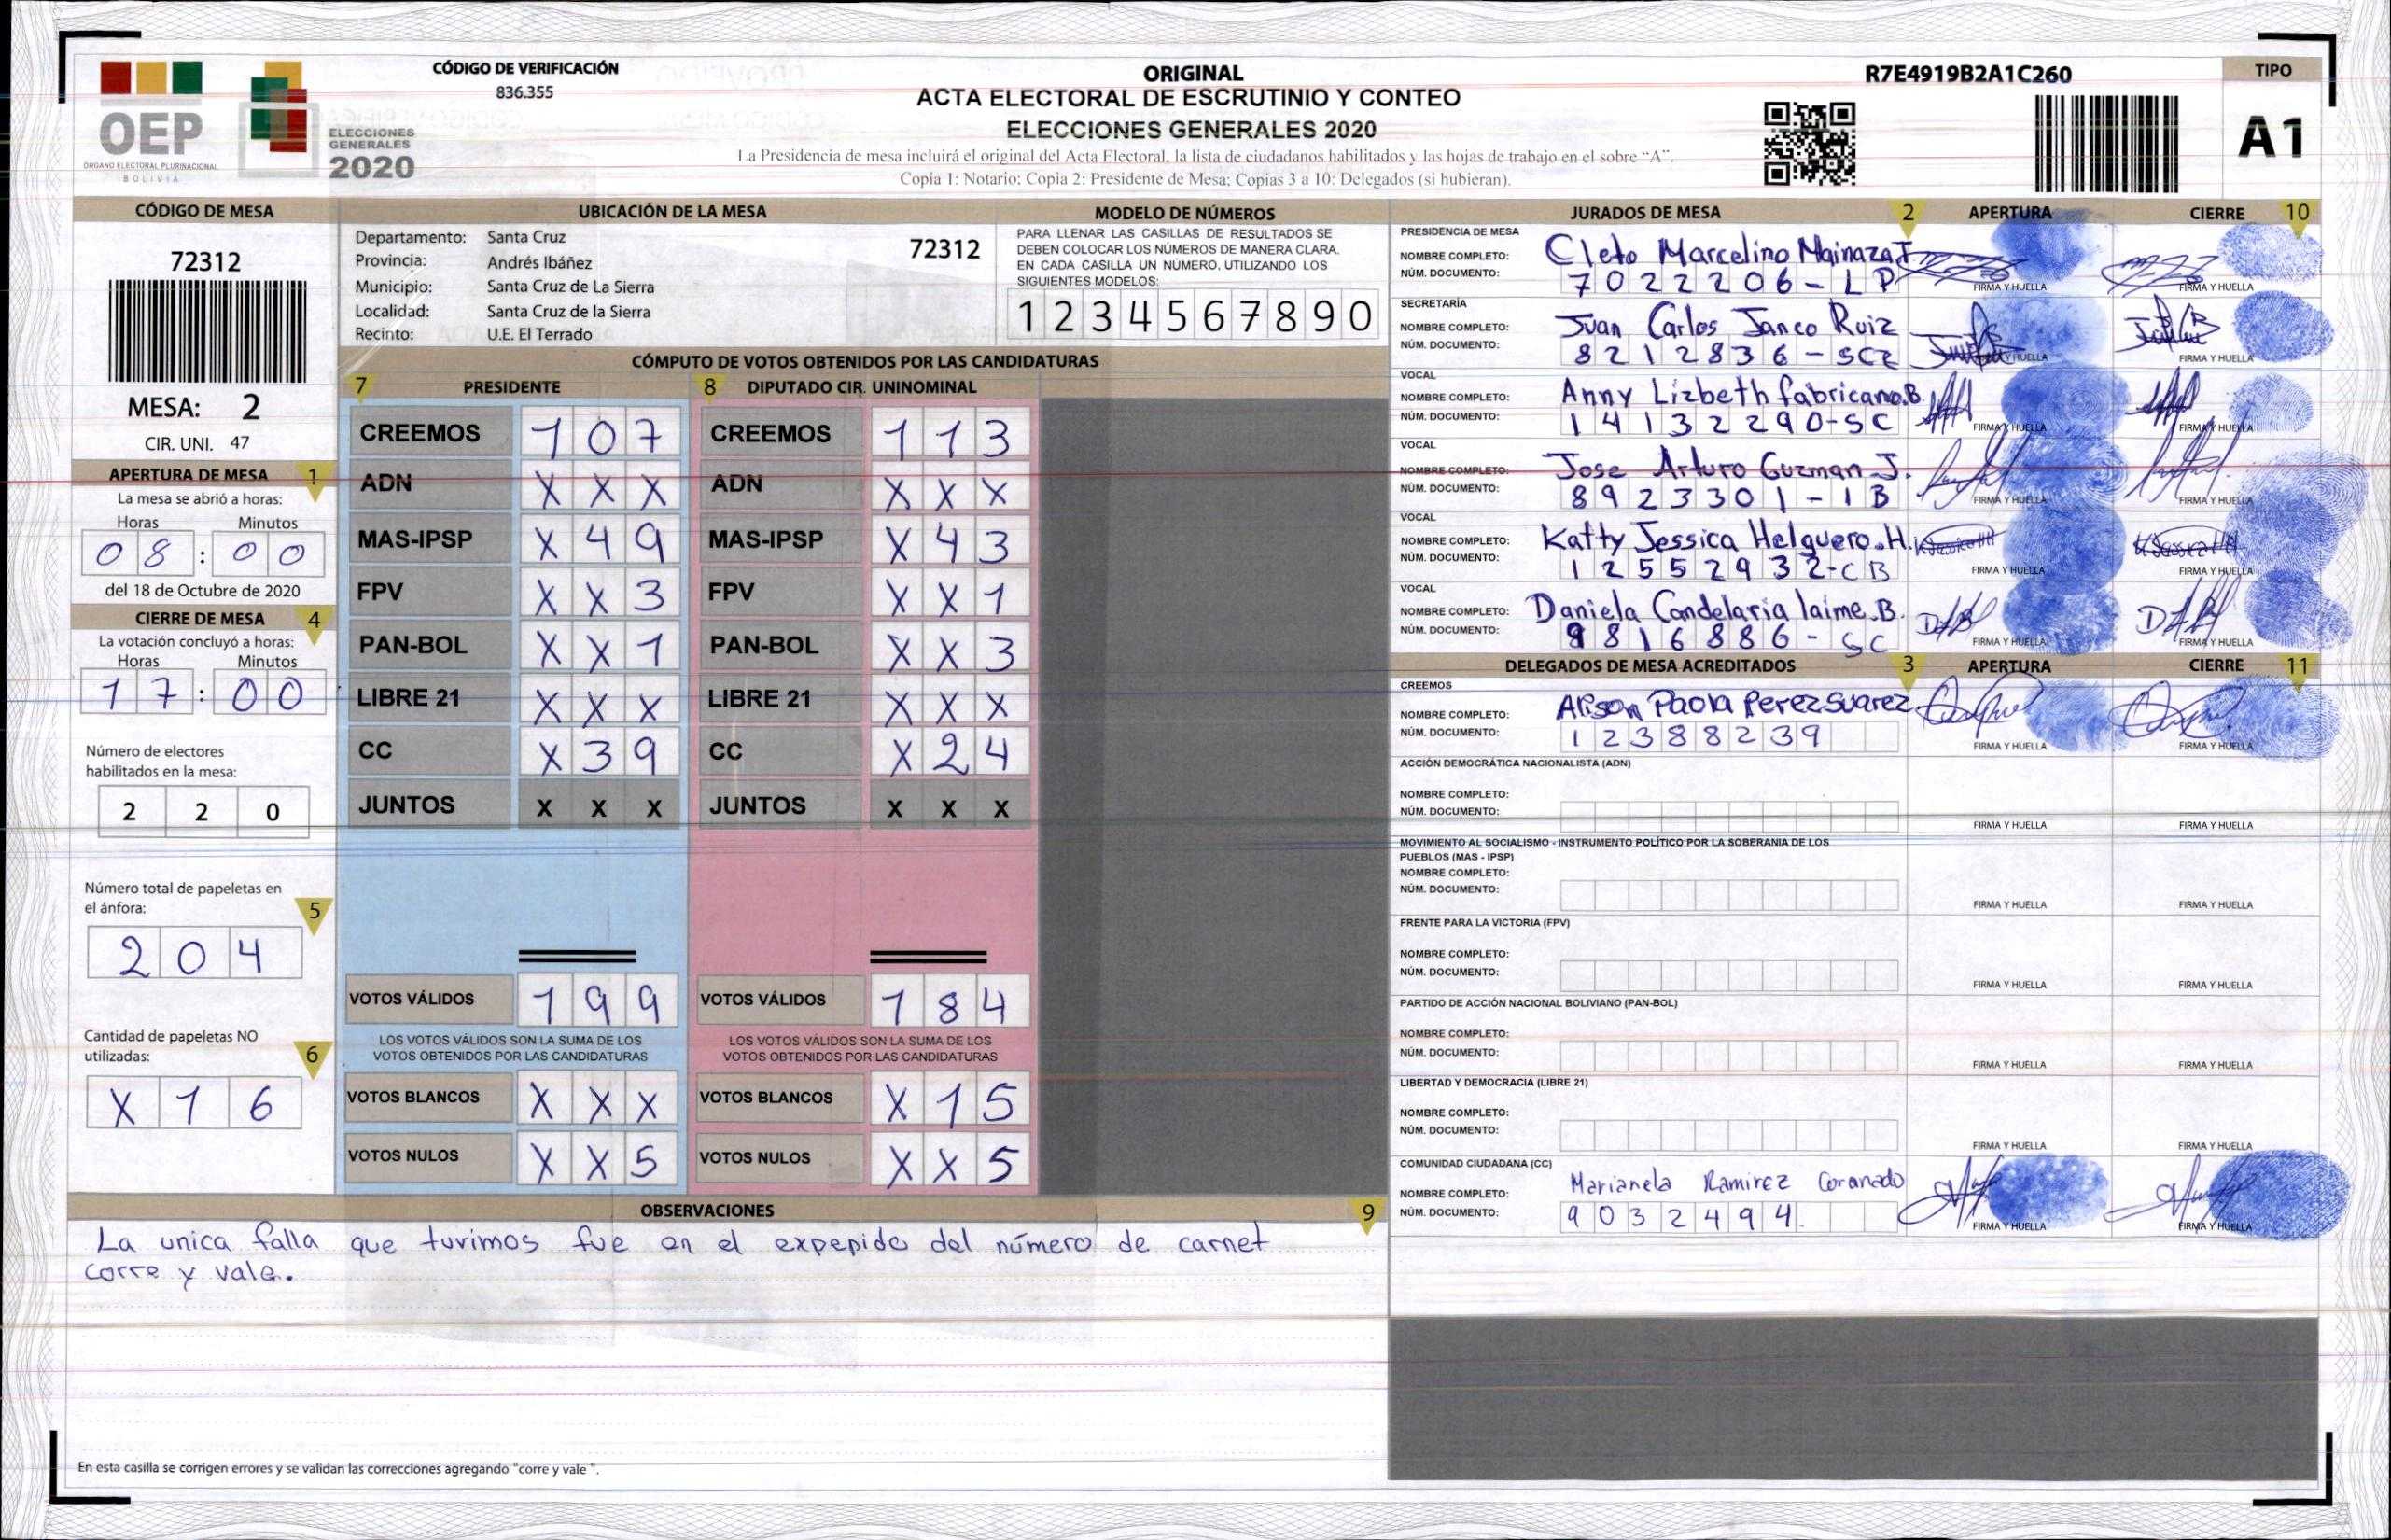 OEP
ÓRGANO ELECTORAL PLURINACIONAL
BOLIVIA
ELECCIONES
GENERALES
2020
CÓDIGO DE VERIFICACIÓN
836.355
ORIGINAL
ACTA ELECTORAL DE ESCRUTINIO Y CONTEO
ELECCIONES GENERALES 2020
La Presidencia de mesa incluirá el original del Acta Electoral, la lista de ciudadanos habilitados y las hojas de trabajo en el sobre “A”.
Copia 1: Notario; Copia 2: Presidente de Mesa; Copias 3 a 10: Delegados (si hubieran).
R7E4919B2A1C260
TIPO
A1
CÓDIGO DE MESA
72312
MESA: 2
CIR. UNI. 47
APERTURA DE MESA 1
La mesa se abrió a horas:
Horas Minutos
0 8 : 0 0
del 18 de Octubre de 2020
CIERRE DE MESA 4
La votación concluyó a horas:
Horas Minutos
1 7 : 0 0
Número de electores
habilitados en la mesa:
2 2 0
Número total de papeletas en
el ánfora: 5
2 0 4
Cantidad de papeletas NO
utilizadas: 6
X 1 6
UBICACIÓN DE LA MESA
Departamento: Santa Cruz
Provincia: Andrés Ibáñez
Municipio: Santa Cruz de La Sierra
Localidad: Santa Cruz de la Sierra
Recinto: U.E. El Terrado
72312
MODELO DE NÚMEROS
PARA LLENAR LAS CASILLAS DE RESULTADOS SE
DEBEN COLOCAR LOS NÚMEROS DE MANERA CLARA.
EN CADA CASILLA UN NÚMERO, UTILIZANDO LOS
SIGUIENTES MODELOS:
1 2 3 4 5 6 7 8 9 0
CÓMPUTO DE VOTOS OBTENIDOS POR LAS CANDIDATURAS
7 PRESIDENTE 8 DIPUTADO CIR. UNINOMINAL
CREEMOS 1 0 7 CREEMOS 1 1 3
ADN X X X ADN X X X
MAS-IPSP X 4 9 MAS-IPSP X 4 3
FPV X X 3 FPV X X 1
PAN-BOL X X 1 PAN-BOL X X 3
LIBRE 21 X X X LIBRE 21 X X X
CC X 3 9 CC X 2 4
JUNTOS X X X JUNTOS X X X
VOTOS VÁLIDOS 1 9 9 VOTOS VÁLIDOS 1 8 4
LOS VOTOS VÁLIDOS SON LA SUMA DE LOS LOS VOTOS VÁLIDOS SON LA SUMA DE LOS
VOTOS OBTENIDOS POR LAS CANDIDATURAS VOTOS OBTENIDOS POR LAS CANDIDATURAS
VOTOS BLANCOS X X X VOTOS BLANCOS X 1 5
VOTOS NULOS X X 5 VOTOS NULOS X X 5
OBSERVACIONES 9
La unica falla que tuvimos fue en el expepido del número de carnet
corre y vale.
En esta casilla se corrigen errores y se validan las correcciones agregando "corre y vale ".
JURADOS DE MESA 2 APERTURA CIERRE 10
PRESIDENCIA DE MESA
NOMBRE COMPLETO: Cleto Marcelino Mainaza J
NÚM. DOCUMENTO: 7022206-LP FIRMA Y HUELLA FIRMA Y HUELLA
SECRETARÍA
NOMBRE COMPLETO: Juan Carlos Janco Ruiz
NÚM. DOCUMENTO: 8212836-SCZ FIRMA Y HUELLA FIRMA Y HUELLA
VOCAL
NOMBRE COMPLETO: Anny Lizbeth fabricano.B
NÚM. DOCUMENTO: 14132290-SC FIRMA Y HUELLA FIRMA Y HUELLA
VOCAL
NOMBRE COMPLETO: Jose Arturo Guzman J.
NÚM. DOCUMENTO: 8923301-1B FIRMA Y HUELLA FIRMA Y HUELLA
VOCAL
NOMBRE COMPLETO: Katty Jessica Helguero.H.
NÚM. DOCUMENTO: 12552932-CB FIRMA Y HUELLA FIRMA Y HUELLA
VOCAL
NOMBRE COMPLETO: Daniela Candelaria laime.B.
NÚM. DOCUMENTO: 9816886-SC FIRMA Y HUELLA FIRMA Y HUELLA
DELEGADOS DE MESA ACREDITADOS 3 APERTURA CIERRE 11
CREEMOS
NOMBRE COMPLETO: Alison Paola Perez Suarez
NÚM. DOCUMENTO: 12388239 FIRMA Y HUELLA FIRMA Y HUELLA
ACCIÓN DEMOCRÁTICA NACIONALISTA (ADN)
NOMBRE COMPLETO:
NÚM. DOCUMENTO: FIRMA Y HUELLA FIRMA Y HUELLA
MOVIMIENTO AL SOCIALISMO - INSTRUMENTO POLÍTICO POR LA SOBERANIA DE LOS
PUEBLOS (MAS - IPSP)
NOMBRE COMPLETO:
NÚM. DOCUMENTO: FIRMA Y HUELLA FIRMA Y HUELLA
FRENTE PARA LA VICTORIA (FPV)
NOMBRE COMPLETO:
NÚM. DOCUMENTO: FIRMA Y HUELLA FIRMA Y HUELLA
PARTIDO DE ACCIÓN NACIONAL BOLIVIANO (PAN-BOL)
NOMBRE COMPLETO:
NÚM. DOCUMENTO: FIRMA Y HUELLA FIRMA Y HUELLA
LIBERTAD Y DEMOCRACIA (LIBRE 21)
NOMBRE COMPLETO:
NÚM. DOCUMENTO: FIRMA Y HUELLA FIRMA Y HUELLA
COMUNIDAD CIUDADANA (CC)
NOMBRE COMPLETO: Marianela Ramirez Coronado
NÚM. DOCUMENTO: 9032494. FIRMA Y HUELLA FIRMA Y HUELLA